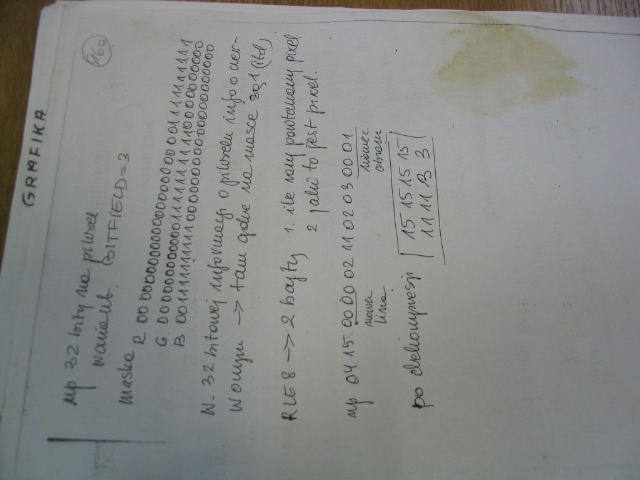 GRAFIKA
160
np 32 bity na piksel
wariant. BITFIELD=3
maska R 00000000000000000000001111111111
G 00000000000011111111110000000000
B 00111111111100000000000000000000
W 32 bitowej informacji o pikselu info o czer-
wonym → tam gdzie na masce są 1 (itd)
RLE8 → 2 bajty 1. ile razy powtarzamy pixel
2 jaki to jest pixel.
np 04 15 00 00 02 11 02 03 00 01
nowa linia koniec obrazu
po dekompresji 15 15 15 15
11 11 3 3